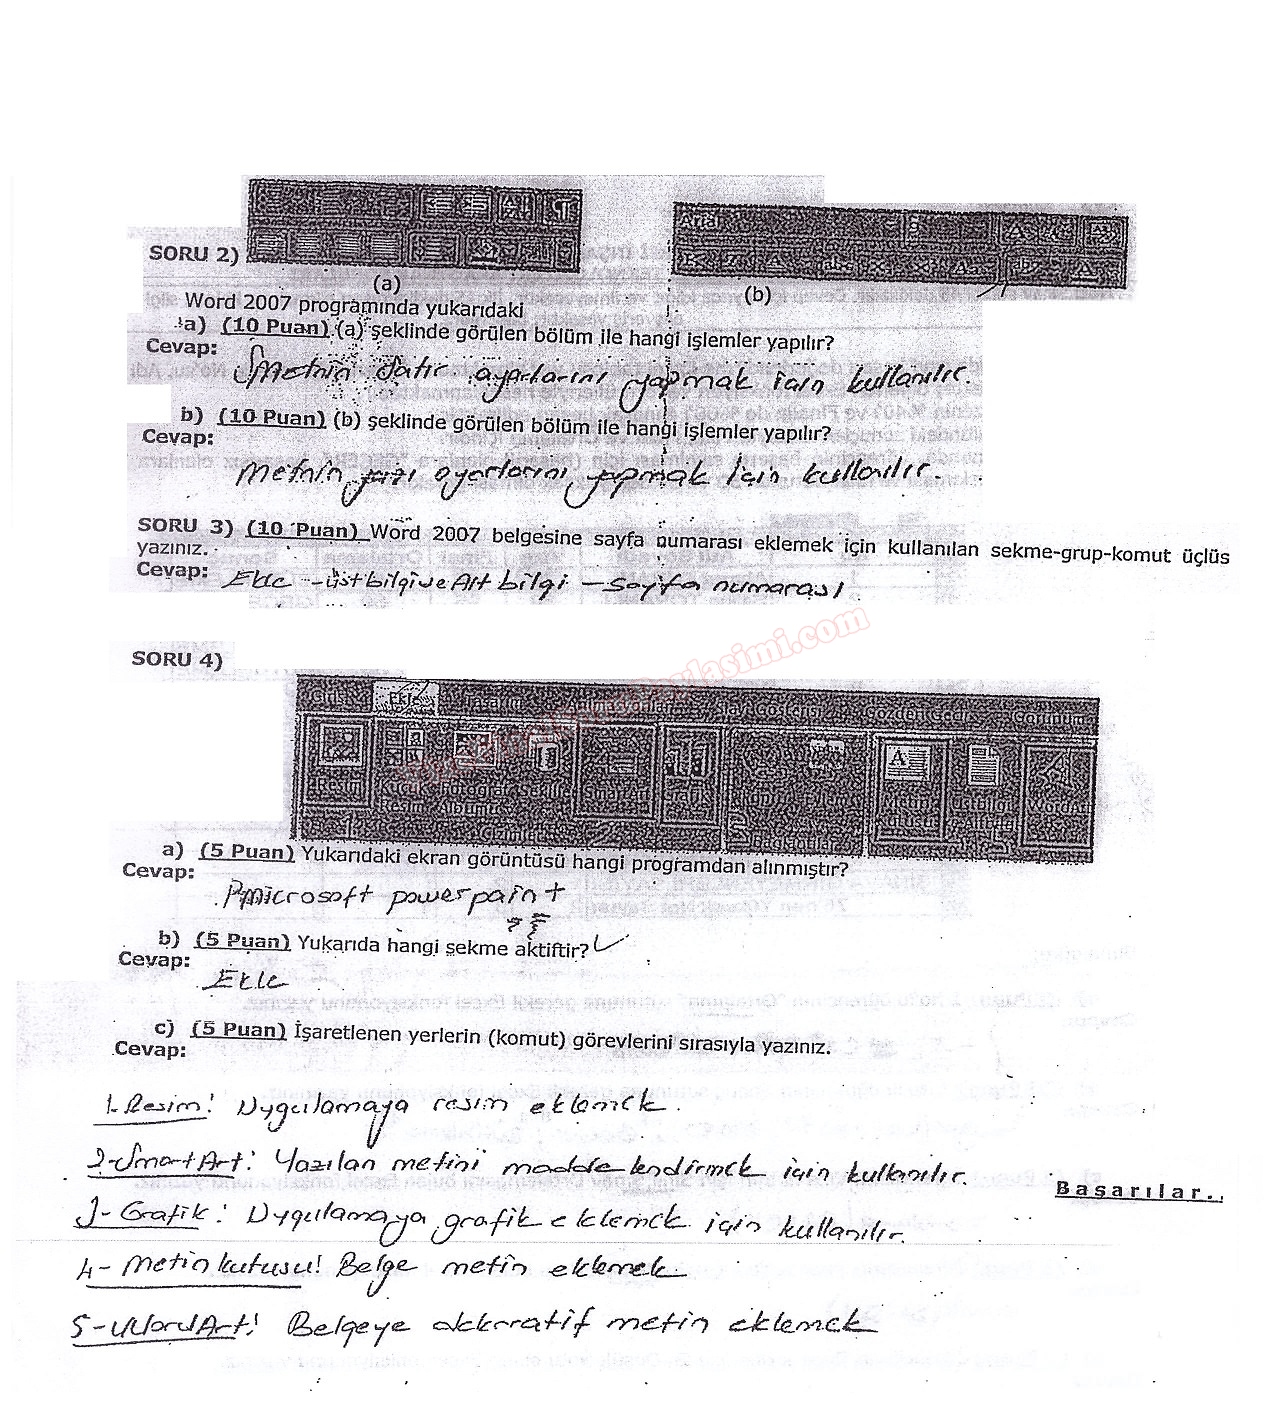 SORU 2)
Arial
(a)
(b)
Word 2007 programında yukarıdaki
a) (10 Puan) (a) şeklinde görülen bölüm ile hangi işlemler yapılır?
Cevap:
Metnin satır ayarlarını yapmak için kullanılır.
b) (10 Puan) (b) şeklinde görülen bölüm ile hangi işlemler yapılır?
Cevap:
Metnin yazı ayarlarını yapmak için kullanılır.
SORU 3) (10 Puan) Word 2007 belgesine sayfa numarası eklemek için kullanılan sekme-grup-komut üçlüs
yazınız.
Cevap: Ekle - üst bilgi ve Alt bilgi - sayfa numarası
SORU 4)
Giriş Ekle Tasarım Slayt Gösterisi Gözden Geçir Görünüm
Resim Küçük Fotoğraf Şekiller SmartArt Grafik Köprü Eylem Metin Üstbilgi WordArt
Resim Albümü Kutusu Altbilgi
1 Çizimler 2 3 Bağlantılar
a) (5 Puan) Yukarıdaki ekran görüntüsü hangi programdan alınmıştır?
Cevap:
Microsoft powerpaint
b) (5 Puan) Yukarıda hangi sekme aktiftir?
Cevap:
Ekle
c) (5 Puan) İşaretlenen yerlerin (komut) görevlerini sırasıyla yazınız.
Cevap:
1-Resim: Uygulamaya resim eklemek.
2-SmartArt: Yazılan metini maddelendirmek için kullanılır.
Başarılar..
3-Grafik: Uygulamaya grafik eklemek için kullanılır.
4- Metin kutusu: Belge metin eklemek
5-WordArt: Belgeye dekoratif metin eklemek